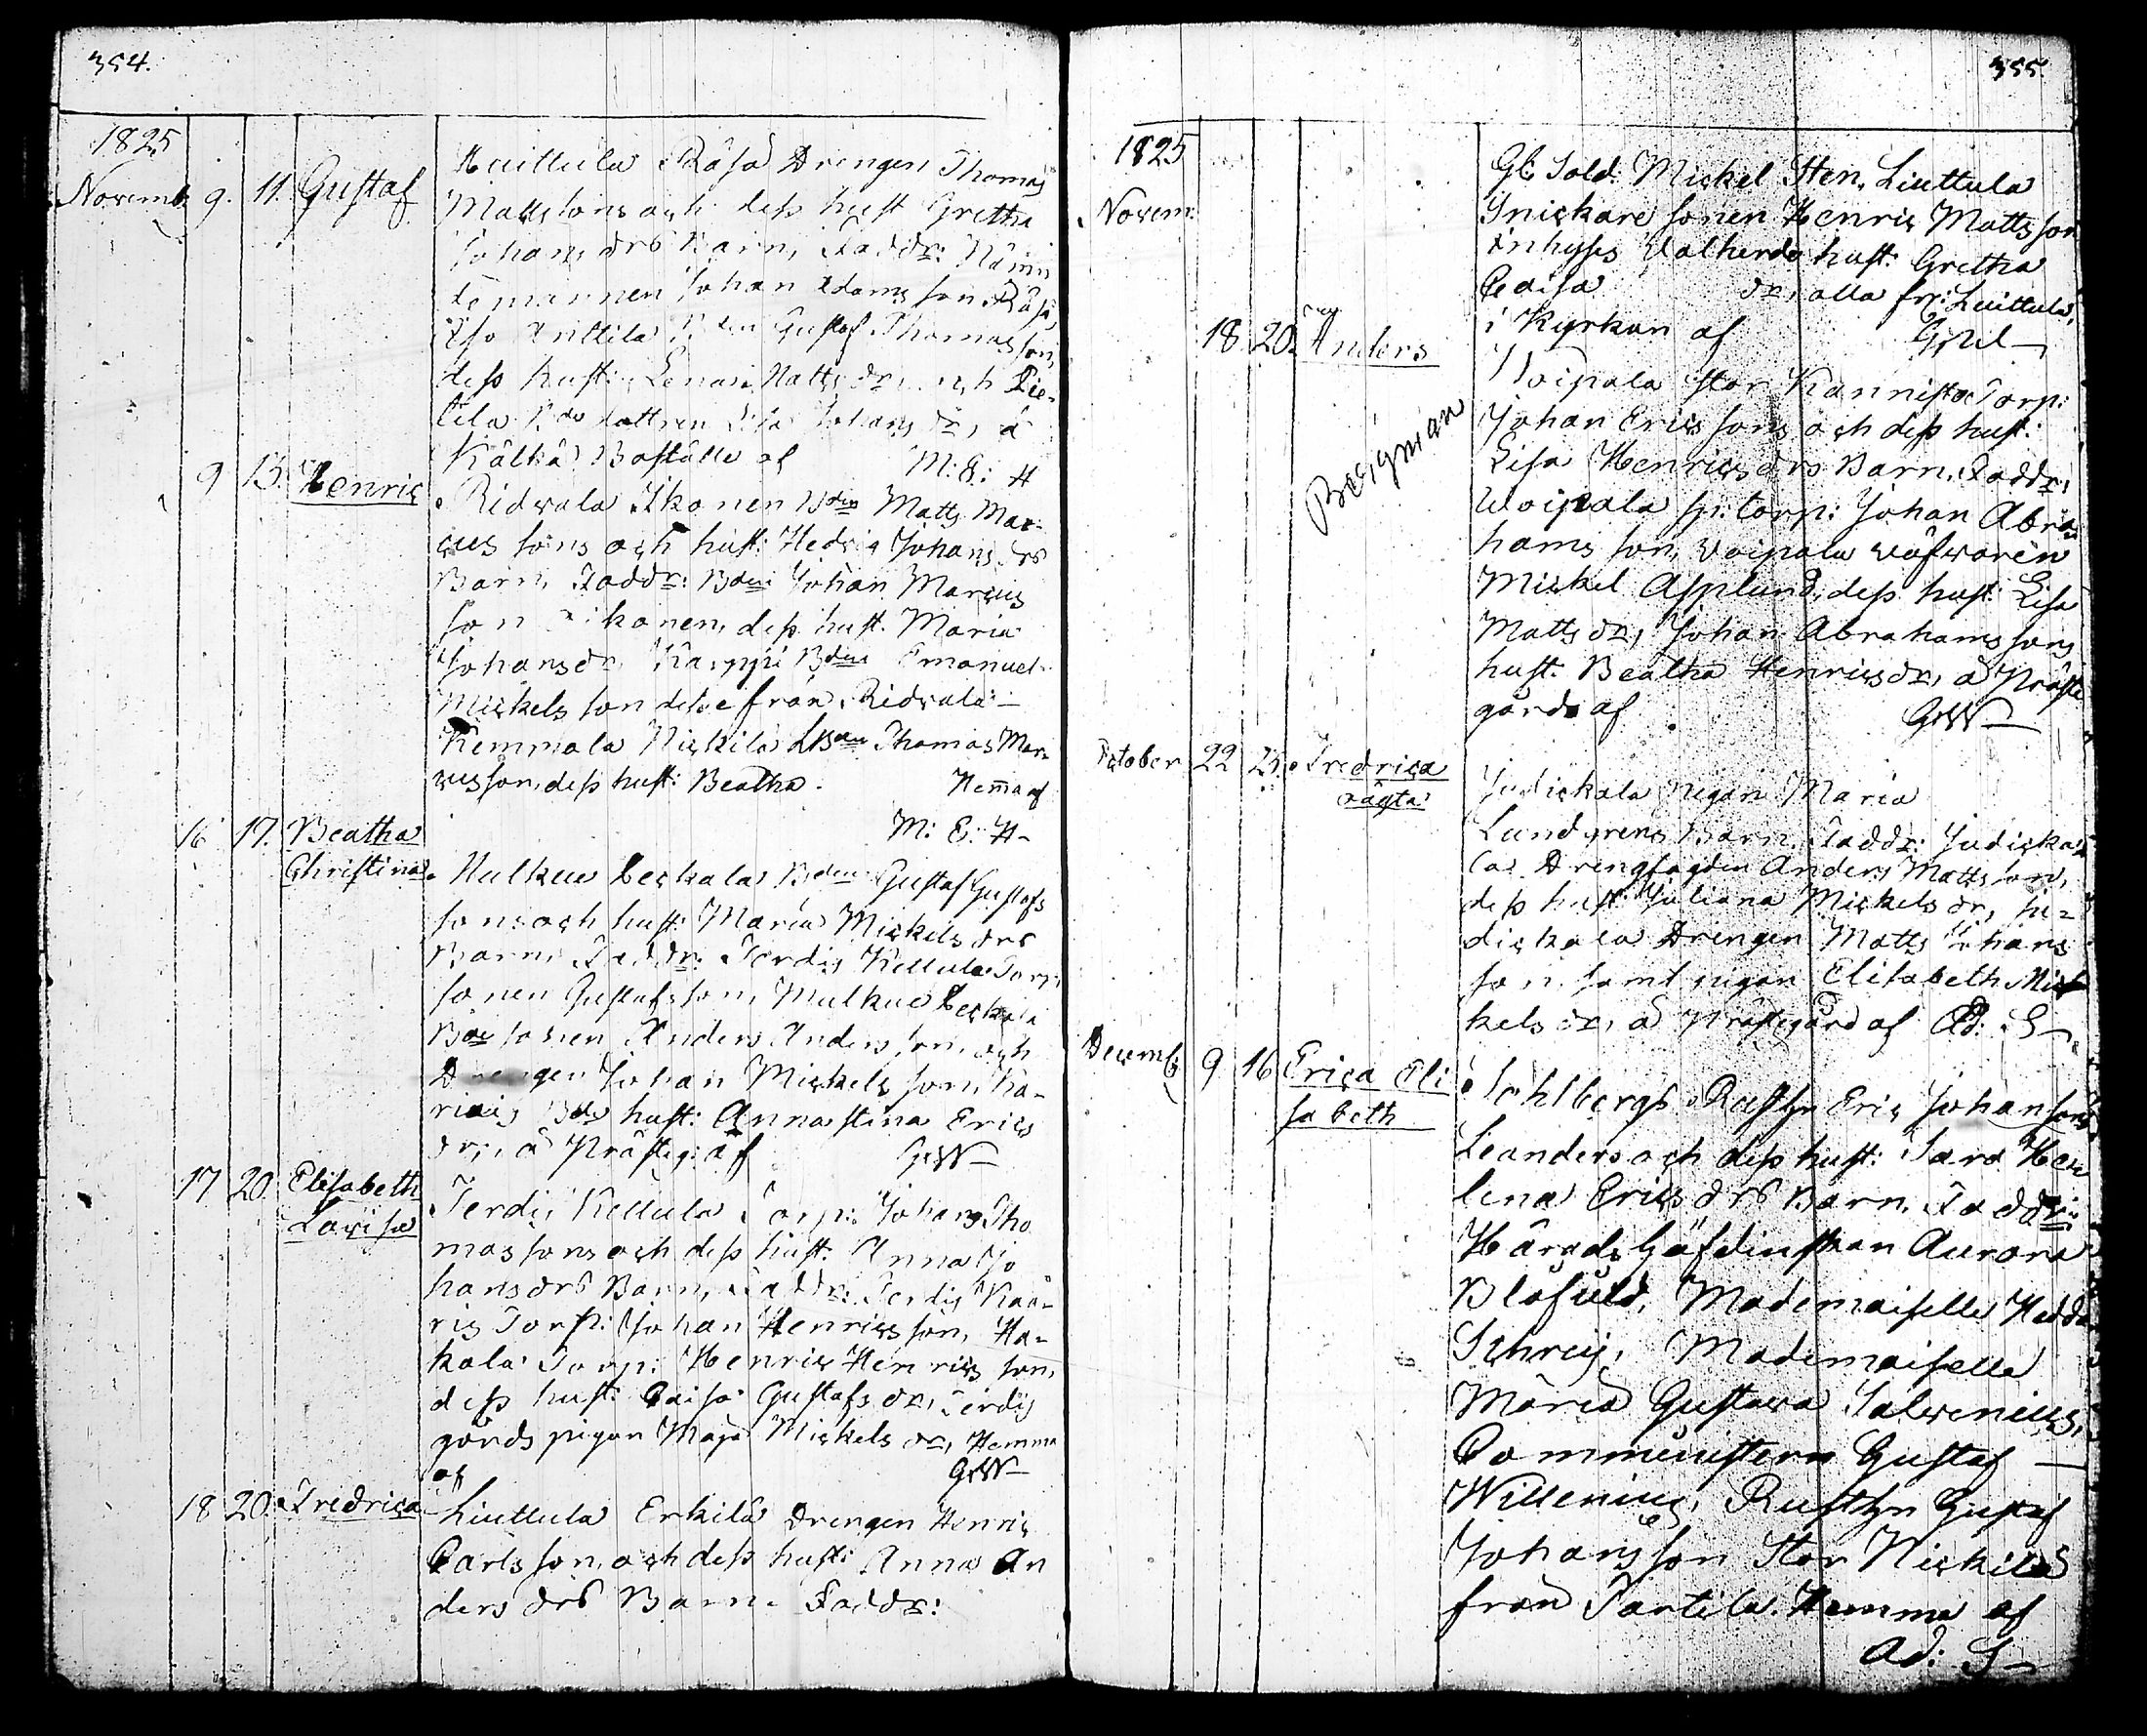 354.
1825
Novemb. 9. 11. Gustaf
Huittula Råsa Drengen Thomas
Matts sons och dess hust Gretha
Johans drs Barn, Faddr: Nämn
demannen Johan Adams son Råsa
Iso Anttila Bden Gustaf Thomas son,
dess hust: Lena Matts dr, och Pie-
tilä Bde dottren Lisa Johans dr, å
Kålkå Boställe af M: E: H
9 13. Henric
Ridvala Ikonen Bden Matts Mar-
cus sons och hust: Hedvig Johans drs
Barn, Faddr: Bden Johan Marcus
son Ikonen, dess hust. Maria
Johans dr, Karppi Bden Emanuel
Mickels son desse från Ridvala
Kemmola Nickilä LBden Thomas Mar-
cus son, dess hust: Beatha. Hem̅a af
M: E: H-
16 17. Beatha
Christina.
Hulkue Leckola Bden Gustaf Gustafs
sons och hust: Maria Mickels drs
Barn, Faddr: Terdis Kellula Torp:
sonen Gustafs son, Mulkue Leckola
Bde sonen Anders Anders son, och
Drengen Johan Mickels son, Ka-
riais Bde hust: Anna stina Erics
dr, å Prästeg: af GrW-
17 20. Elisabeth
Lovisa
Terdis Kellula Torp: Johans Tho
mas sons och dess hust: Anna Jo
hans drs Barn, Faddr: Terdis Kaa-
ris Torp: Johan Henrics son, Ha-
kala Torp: Henric Henrics son,
dess hust: Caisa Gustafs dr, Terdis
gårds pigan Maja Mickels dr, Hemma
af GrW-
18 20. Fredrica
Liuttula Erkilä Drengen Henric
Carls son, och dess hust: Anna An
ders drs Barn. Faddr:
355.
1825
Novem:
Gl. Sold. Mickel Sten, Liuttula
Snickare sonen Henric Matts son
Inhyses Valherds hust: Gretha
Caisa dr, alla fr: Liuttula,
i Kyrkan af
18. 20. Anders
Voipala Stor Kannisto Torp:
Johan Erics sons och dess hust:
Lisa Henrics drs Barn. Faddr:
Besigman
Woipala sp: torp: Johan Abra
hams son, Voipala väfvaren
Mickel Asplund, dess hust: Lisa
Matts dr, Johan Abrahams sons
hust: Beatha Henrics dr, å Präste
gård af GrW-
October 22 25. Fredrica
oägta
Judickala pigan Maria
Lundgrens Barn. Faddr: Judicka-
la Drengfogden Anders Matts son,
dess hust: Juliana Mickels dr, Ju-
dickala Drengen Matts Johans
son samt pigan Elisabeth Mic
kels dr, å Prästegård af Ad: S-
Decemb. 9 16 Erica Eli
sabeth
Sohlbergs Rusth: Eric Johans sons
Leanders och dess hust: Sara He
lena Erics drs Barn. Faddr:
Härads höfdinskan Aurora
Blåfield, Mademoiselle Hedda
Schreij, Mademoiselle
Maria Gustava Salvenius,
Comministern Gustaf
Willenius, Rusth: Gustaf
Johans son Stor Nickilä
från Tartila. Hemma af
Ad: S-